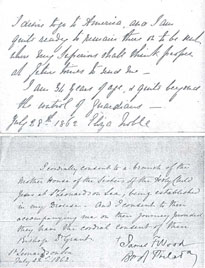 I desire to go to America, and I am
quite ready to remain there or to be sent
when my Superiors shall think proper
at febr times to send me —
I am 34 years of age, & quite beyond
the control of guardians —
July 28th 1862 Eliza Noble
I cordially consent to a branch of the
Mother House of the Sisters of the Holy Child
Jesus St Leonards on Sea, being established
in my Diocese. And I consent to their
accompanying me on their journey provided
they have the cordial consent of their
Bishop Dr Grant.
James F Wood
Bp of Philada
St Leonards on Sea
July 28th 1862